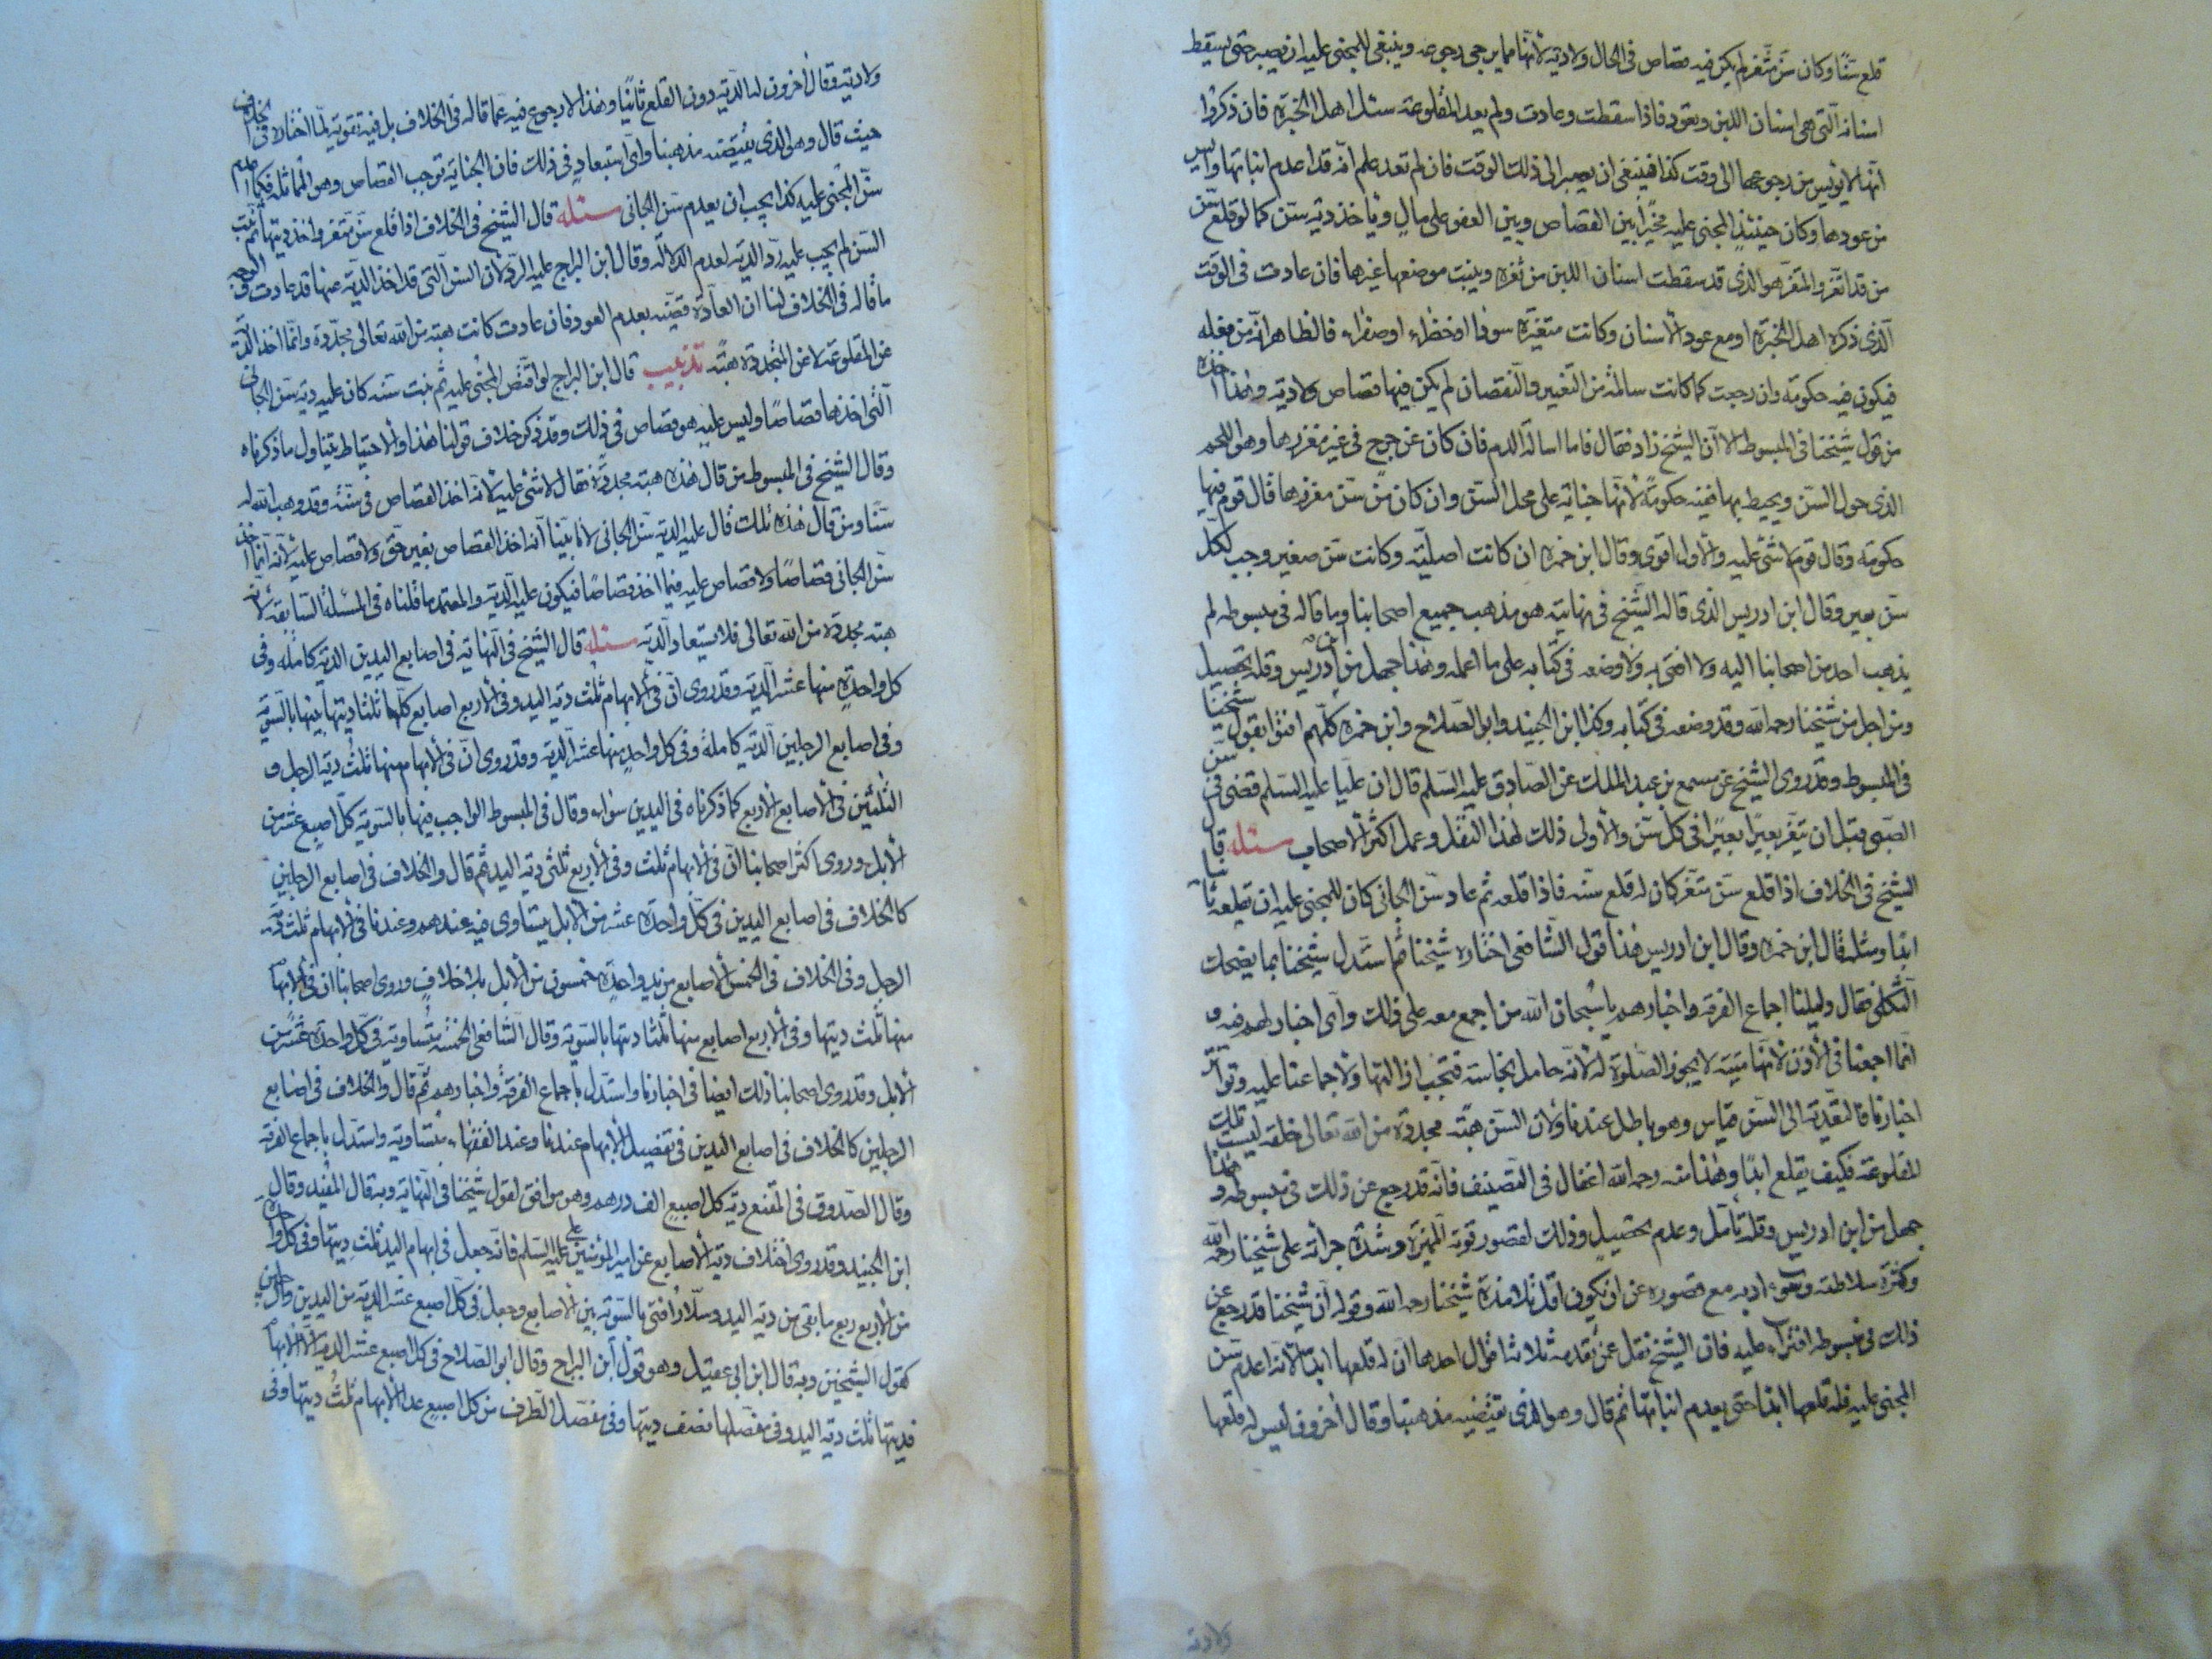 قلع سنّاً وكان سنّ مثغر لم يكن فيه قصاص في الحال ولا دية لأنّها مما يرجى رجوعه وينبغي للمجني عليه ان يصبر حتى يسقط
اسنانه الّتي هي اسنان اللبن ويعود فاذا سقطت وعادت ولم يعد المقلوعة سئل اهل الخبرة فان ذكروا
انّها لا يؤيس من رجوعها الى وقت كذا فينبغي ان يصبر الى ذلك الوقت فان لم تعد علم انّه قد اعدم انباتها وايس
من عودها وكان حينئذ المجني عليه مخيّراً بين القصاص وبين العفو على مال وياخذ دية سنّ كما لو قلع سنّ
من قد اثغر والمثغر هو الذي قد سقطت اسنان اللبن من ثغره وينبت موضعها غيرها فان عادت في الوقت
الّذي ذكره اهل الخبرة او مع عود الاسنان وكانت متغيّرة سوداء او خضراء او صفراء فالظاهر انّه من فعله
فيكون فيه حكومة وان رجعت كما كانت سالمة من التغيير والنقصان لم يكن فيها قصاص ولا دية وهذا اخذه
من قول شيخنا في المبسوط الا انّ الشيخ زاد فقال فاما اسالة الدم فان كان عن جرح في غير مغرزها وهو اللحم
الذي حول السنّ ويحيط بها ففيه حكومة لأنّها جناية على محل السنّ وان كان من سنّ مغرزها قال قوم فيها
حكومة وقال قوم لا شئ عليه والاول اقوى وقال ابن حمزه ان كانت اصليّة وكانت سنّ صغير وجب لكلّ
سنّ بعير وقال ابن ادريس الذي قاله الشيخ في نهايته هو مذهب جميع اصحابنا وما قاله في مبسوطه لم
يذهب احد من اصحابنا اليه ولا افتى به ولا وضعه في كتابه على ما اعلمه وهذا جهل من ابن ادريس وقلة تحصيل
ومن اجل من شيخنا رحمه الله وقد وضعه في كتابه وكذا ابن الجنيد وابو الصّلاح وابن حمزه كلّهم افتوا بقول شيخنا
في المبسوط وقد روى الشيخ عن مسمع بن عبد الملك عن الصّادق عليه السّلم قال ان عليا عليه السّلم قضى في سنّ
الصّبي قبل ان يثغر بعيراً بعيراً في كل سنّ والأولى ذلك لهذا النقل وعمل اكثر الاصحاب مسئله قال
الشيخ في الخلاف اذا قلع سنّ مثغر كان له قلع سنّه فاذا قلعه ثم عاد سنّ الجاني كان للمجني عليه ان يقلعه ثانيا
ابدا ومثله قال ابن حمزه وقال ابن ادريس هذا قول الشّافعي اختاره شيخنا ثم استدل شيخنا بما يضحك
الثكلى فقال دليلنا اجماع الفرقة واخبارهم يا سبحان الله من اجمع معه على ذلك وأي اخبار لهم فيه و
انّما اجمعنا في الأذن لأنّها ميتة لا يجوز الصّلوة له لأنّه حامل نجاسة فتجب ازالتها ولاجماعنا عليه وتواتر
اخبارنا فالتعدية الى السّن قياس وهو باطل عندنا ولأن السّن هبة مجددة من الله تعالى خلقه ليست تلك
المقلوعة فكيف يقلع ابدًا وهذا منه رحمه الله اغفال في التّصنيف فانّه قد رجع عن ذلك في مبسوطه وهذا
جهل من ابن ادريس وقلة تأمل وعدم تحصيل وذلك لقصور قوته المميزة وشدة جرأته على شيخنا رحمه الله
وكثرة سلاطته وسوء ادبه مع قصوره عن ان يكون اقل تلامذة شيخنا رحمه الله وقوله انّ شيخنا قد رجع عن
ذلك في مبسوطه افتراء عليه فان الشيخ نقل عمن تقدمه ثلاثة اقوال احدها ان له قلعها ابدا لأنه اعدم سنّ
المجني عليه فله قلعها ابدا حتى يعدم انباتها ثم قال وهو الذي يقتضيه مذهبنا وقال آخرون ليس له قلعها
ولادية
ولا دية وقال آخرون له الدّية دون القلع ثانيًا وهذا لا رجوع فيه عما قاله في الخلاف بل فيه تقوية لما اختاره في الخلاف
حيث قال وهو الذي يقتضيه مذهبنا وأي استبعاد في ذلك فان الجناية توجب القصاص وهو المماثلة فكما اعدم
سنّ المجني عليه كذا يجب ان يعدم سنّ الجاني مسئله قال الشيخ في الخلاف اذا قلع سنّ مثغر واخذ ديتها ثم نبت
السّن لم يجب عليه ردّ الدية لعدم الدلالة وقال ابن البراج عليه الردّ لأن السنّ الّتي قد اخذ الدّية عنها قد عادت والوجه
ما قاله في الخلاف لنا ان العادة قضيّته بعدم العود فان عادت كانت هبة من الله تعالى مجدّدة وانّما اخذ الدّية
عن المقلوعة لا عن المتجددة هبة تذنيب قال ابن البراج لو اقتصّ المجني عليه ثم نبت سنه كان عليه دية سنّ الجاني
الّتي اخذها قصاصًا وليس عليه هو قصاص في ذلك وقد ذكر خلاف قولنا هذا والاحتياط يتناول ما ذكرناه
وقال الشيخ في المبسوط من قال هذه هبة مجددة فقال لا شئ عليه لأنه اخذ القصاص في سنّه وقد وهب الله له
سنّا ومن قال هذه تلك قال عليه الدية سنّ الجاني لأنا بيّنا انه اخذ القصاص بغير حق ولا قصاص عليه لأنه انّما اخذ
سنّ الجاني قصاصًا ولا قصاص عليه فيما اخذ قصاصًا فيكون عليه الدّية والمعتمد ما قلناه في المسئلة السّابقة لأنه
هبة مجددة من الله تعالى فلا يستعاد الدّية مسئله قال الشيخ في النّهاية في اصابع اليدين الدية كاملة وفي
كل واحدة منها عشر الدّية وقد روى انّ في الابهام ثلث دية اليد وفي الاربع اصابع كلّها ثلثا ديتها بينها بالسّوية
وفي اصابع الرجلين الّدية كاملة وفي كل واحدة منها عشر الدّية وقد روى انّ في الابهام منها ثلث دية الرجل و
الثلثين في الاصابع الأربع كما ذكرناه في اليدين سواء وقال في المبسوط الواجب فيها بالسّوية كلّ اصبع عشر من
الابل وروى اكثر اصحابنا انّ في الابهام ثلث وفي الأربع ثلثي دية اليد ثم قال والخلاف في اصابع الرجلين
كالخلاف في اصابع اليدين في كلّ واحدة عشر من الابل يتساوى فيه عندهم وعندنا في الابهام ثلث دية
الرجل وفي الخلاف في الخمس الاصابع من يد واحدة خمسون من الابل بلا خلاف وروى اصحابنا ان في الابهام
منها ثلث ديتها وفي الاربع اصابع منها ثلثا ديتها بالسّوية وقال الشافعي الخمسة متساوية في كلّ واحدة عشر من
الابل وقد روى اصحابنا ذلك ايضا في اخبارنا واستدل باجماع الفرقة واخبارهم ثم قال والخلاف في اصابع
الرجلين كالخلاف في اصابع اليدين في تفضيل الابهام عندنا وعند الفقهاء متساوية واستدل باجماع الفرقة
وقال الصّدوق في المقنع دية كل اصبع الف درهم وهو موافق لقول شيخنا في النّهاية وبه قال المفيد وقال
ابن الجنيد وقد روى اختلاف دية الاصابع عن امير المؤمنين على عليه السّلم فانّه جعل في ابهام اليد ثلث ديتها وفي كل واحدة
من الاربع ربع ما بقي من دية اليد وسلّار افتى بالسّوية بين الاصابع وجعل في كلّ اصبع عشر الدّية من اليدين والرجلين
كقول الشيخين وبه قال ابن ابي عقيل وهو قول ابن البراج وقال ابو الصّلاح في كل اصبع عشر الدية الا الابهام
فديتها ثلث دية اليد وفي مفصلها نصف ديتها وفي مفصل الطرف من كل اصبع عدا الابهام ثلث ديتها وفي